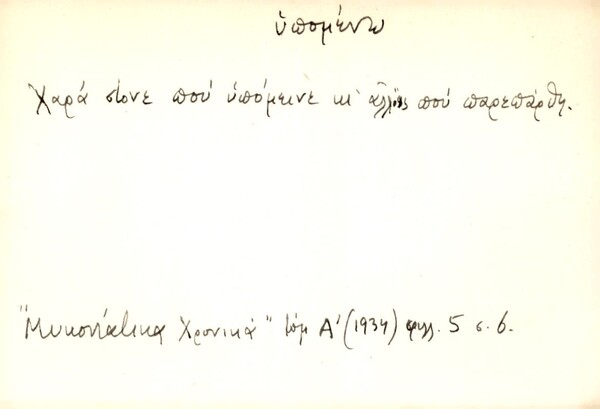 ὑπομένω
Χαρά στονε πού ὑπόμεινε κι' πού παρεπάρθη.
"Μυκονιάτικα Χρονικά" τόμ Α' (1934) φυλλ. 5 σ. 6.